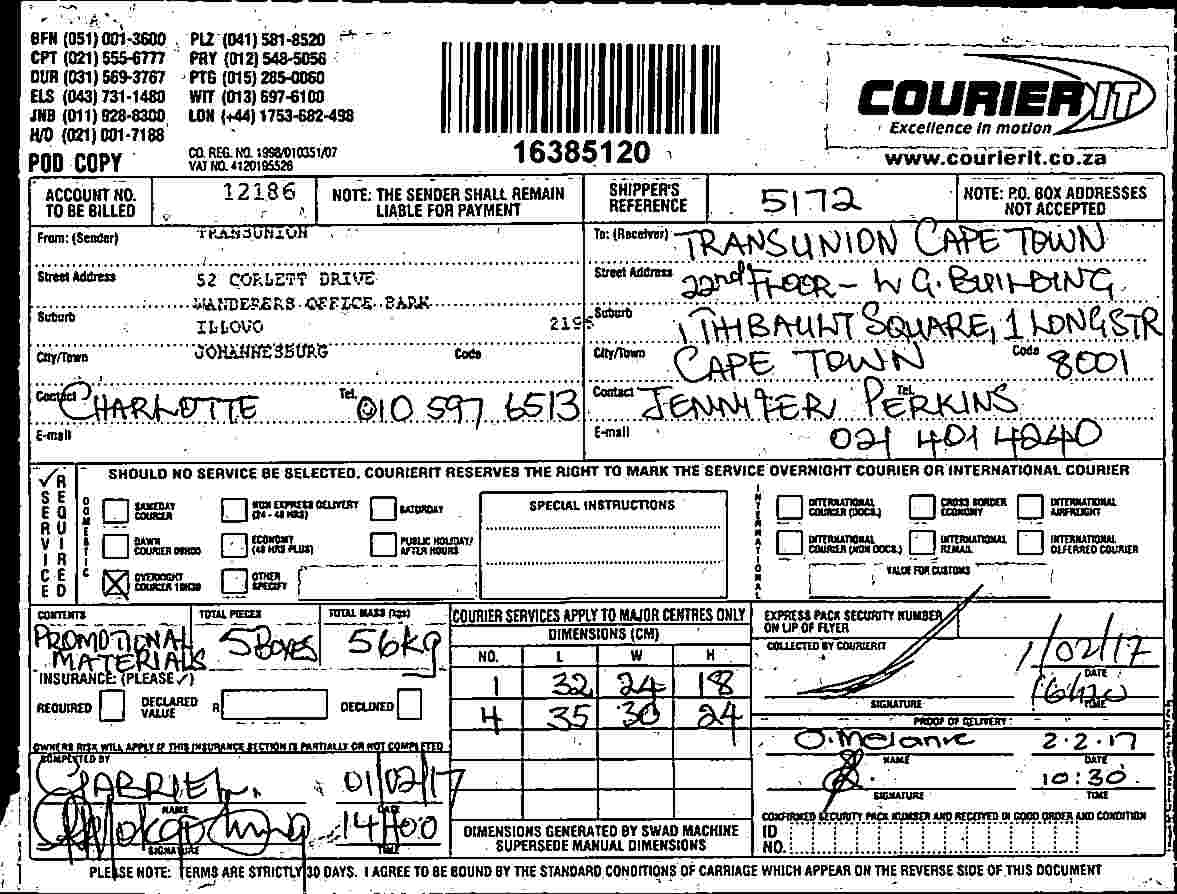 BFN (051) 001-3600 PLZ (041) 581-8520
CPT (021) 555-6777 PRY (012) 548-5056
DUR (031) 569-3767 PTG (015) 285-0060
ELS (043) 731-1480 WIT (013) 697-6100
JNB (011) 928-8300 LON (+44) 1753-682-498
H/O (021) 001-7188
POD COPY
CO. REG. NO. 1998/010351/07
VAT NO. 4120195526
16385120
COURIER IT
Excellence in motion
www.courierit.co.za
ACCOUNT NO. TO BE BILLED
12186
NOTE: THE SENDER SHALL REMAIN LIABLE FOR PAYMENT
SHIPPER'S REFERENCE
5172
NOTE: P.O. BOX ADDRESSES NOT ACCEPTED
From: (Sender) TRANSUNION
Street Address 52 CORLETT DRIVE
WANDERERS OFFICE PARK
Suburb ILLOVO 2196
City/Town JOHANNESBURG Code
Contact CHARLOTTE Tel. 010 597 6513
E-mail
To: (Receiver) TRANSUNION CAPE TOWN
Street Address 22nd FLOOR - L G. BUILDING
Suburb 1 THIBAULT SQUARE, 1 LONG STR
City/Town CAPE TOWN Code 8001
Contact JENNIFER PERKINS Tel.
E-mail 021 401 4240
SERVICE REQUIRED
SHOULD NO SERVICE BE SELECTED. COURIERIT RESERVES THE RIGHT TO MARK THE SERVICE OVERNIGHT COURIER OR INTERNATIONAL COURIER
DOMESTIC
SAMEDAY COURIER
NON EXPRESS DELIVERY (24 - 48 HRS)
SATURDAY
DAWN COURIER 09H00
ECONOMY (48 HRS PLUS)
PUBLIC HOLIDAY/ AFTER HOURS
OVERNIGHT COURIER 10H30
OTHER SPECIFY
SPECIAL INSTRUCTIONS
INTERNATIONAL
INTERNATIONAL COURIER (DOCS.)
CROSS BORDER ECONOMY
INTERNATIONAL AIRFREIGHT
INTERNATIONAL COURIER (NON DOCS.)
INTERNATIONAL REMAIL
INTERNATIONAL DEFERRED COURIER
VALUE FOR CUSTOMS
CONTENTS
PROMOTIONAL MATERIALS
TOTAL PIECES
5 BOXES
TOTAL MASS (kgs)
56kg
INSURANCE: (PLEASE ✓)
REQUIRED
DECLARED VALUE R
DECLINED
OWNERS RISK WILL APPLY IF THIS INSURANCE SECTION IS PARTIALLY OR NOT COMPLETED
COMPLETED BY
GABRIEL 01/02/17
NAME DATE
14H00
SIGNATURE TIME
COURIER SERVICES APPLY TO MAJOR CENTRES ONLY
DIMENSIONS (CM)
NO. L W H
1 32 24 18
4 35 30 24
DIMENSIONS GENERATED BY SWAD MACHINE SUPERSEDE MANUAL DIMENSIONS
EXPRESS PACK SECURITY NUMBER ON LIP OF FLYER
COLLECTED BY COURIERIT
1/02/17
DATE
SIGNATURE TIME
PROOF OF DELIVERY:
O. Melanie 2.2.17
NAME DATE
10:30
SIGNATURE TIME
CONFIRMED SECURITY PACK NUMBER AND RECEIVED IN GOOD ORDER AND CONDITION
ID NO.
PLEASE NOTE: TERMS ARE STRICTLY 30 DAYS. I AGREE TO BE BOUND BY THE STANDARD CONDITIONS OF CARRIAGE WHICH APPEAR ON THE REVERSE SIDE OF THIS DOCUMENT